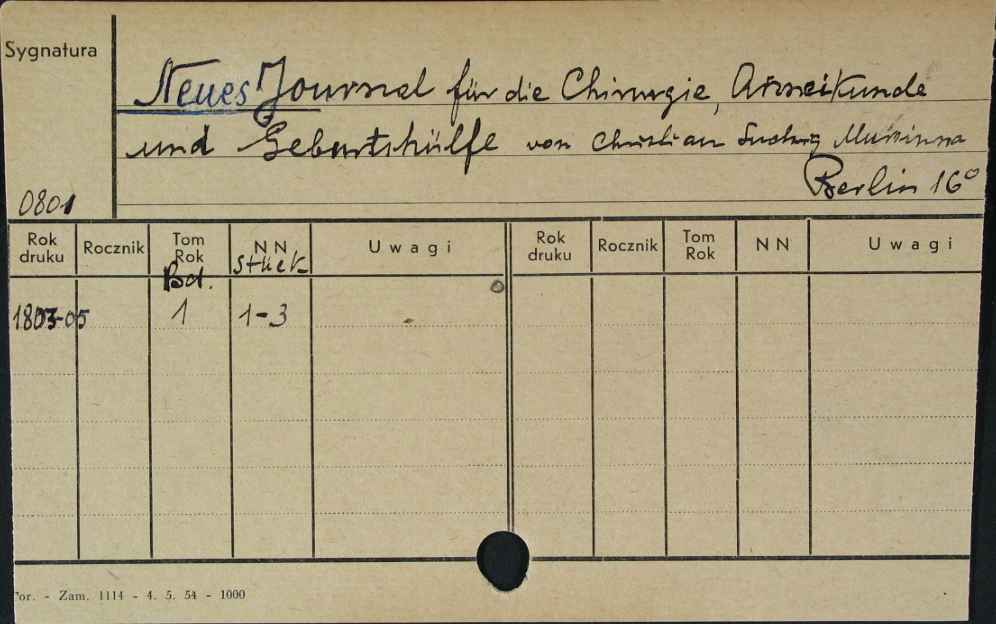 Sygnatura
Neues Journal für die Chirurgie, Arzneikunde
und Geburtshülfe von Christian Ludwig Mursinna
Berlin 16°
0801
Rok druku Rocznik Tom Rok NN Uwagi Rok druku Rocznik Tom Rok NN Uwagi
Bd. Stück
1803-05 1 1-3
or. - Zam. 1114 - 4. 5. 54 - 1000